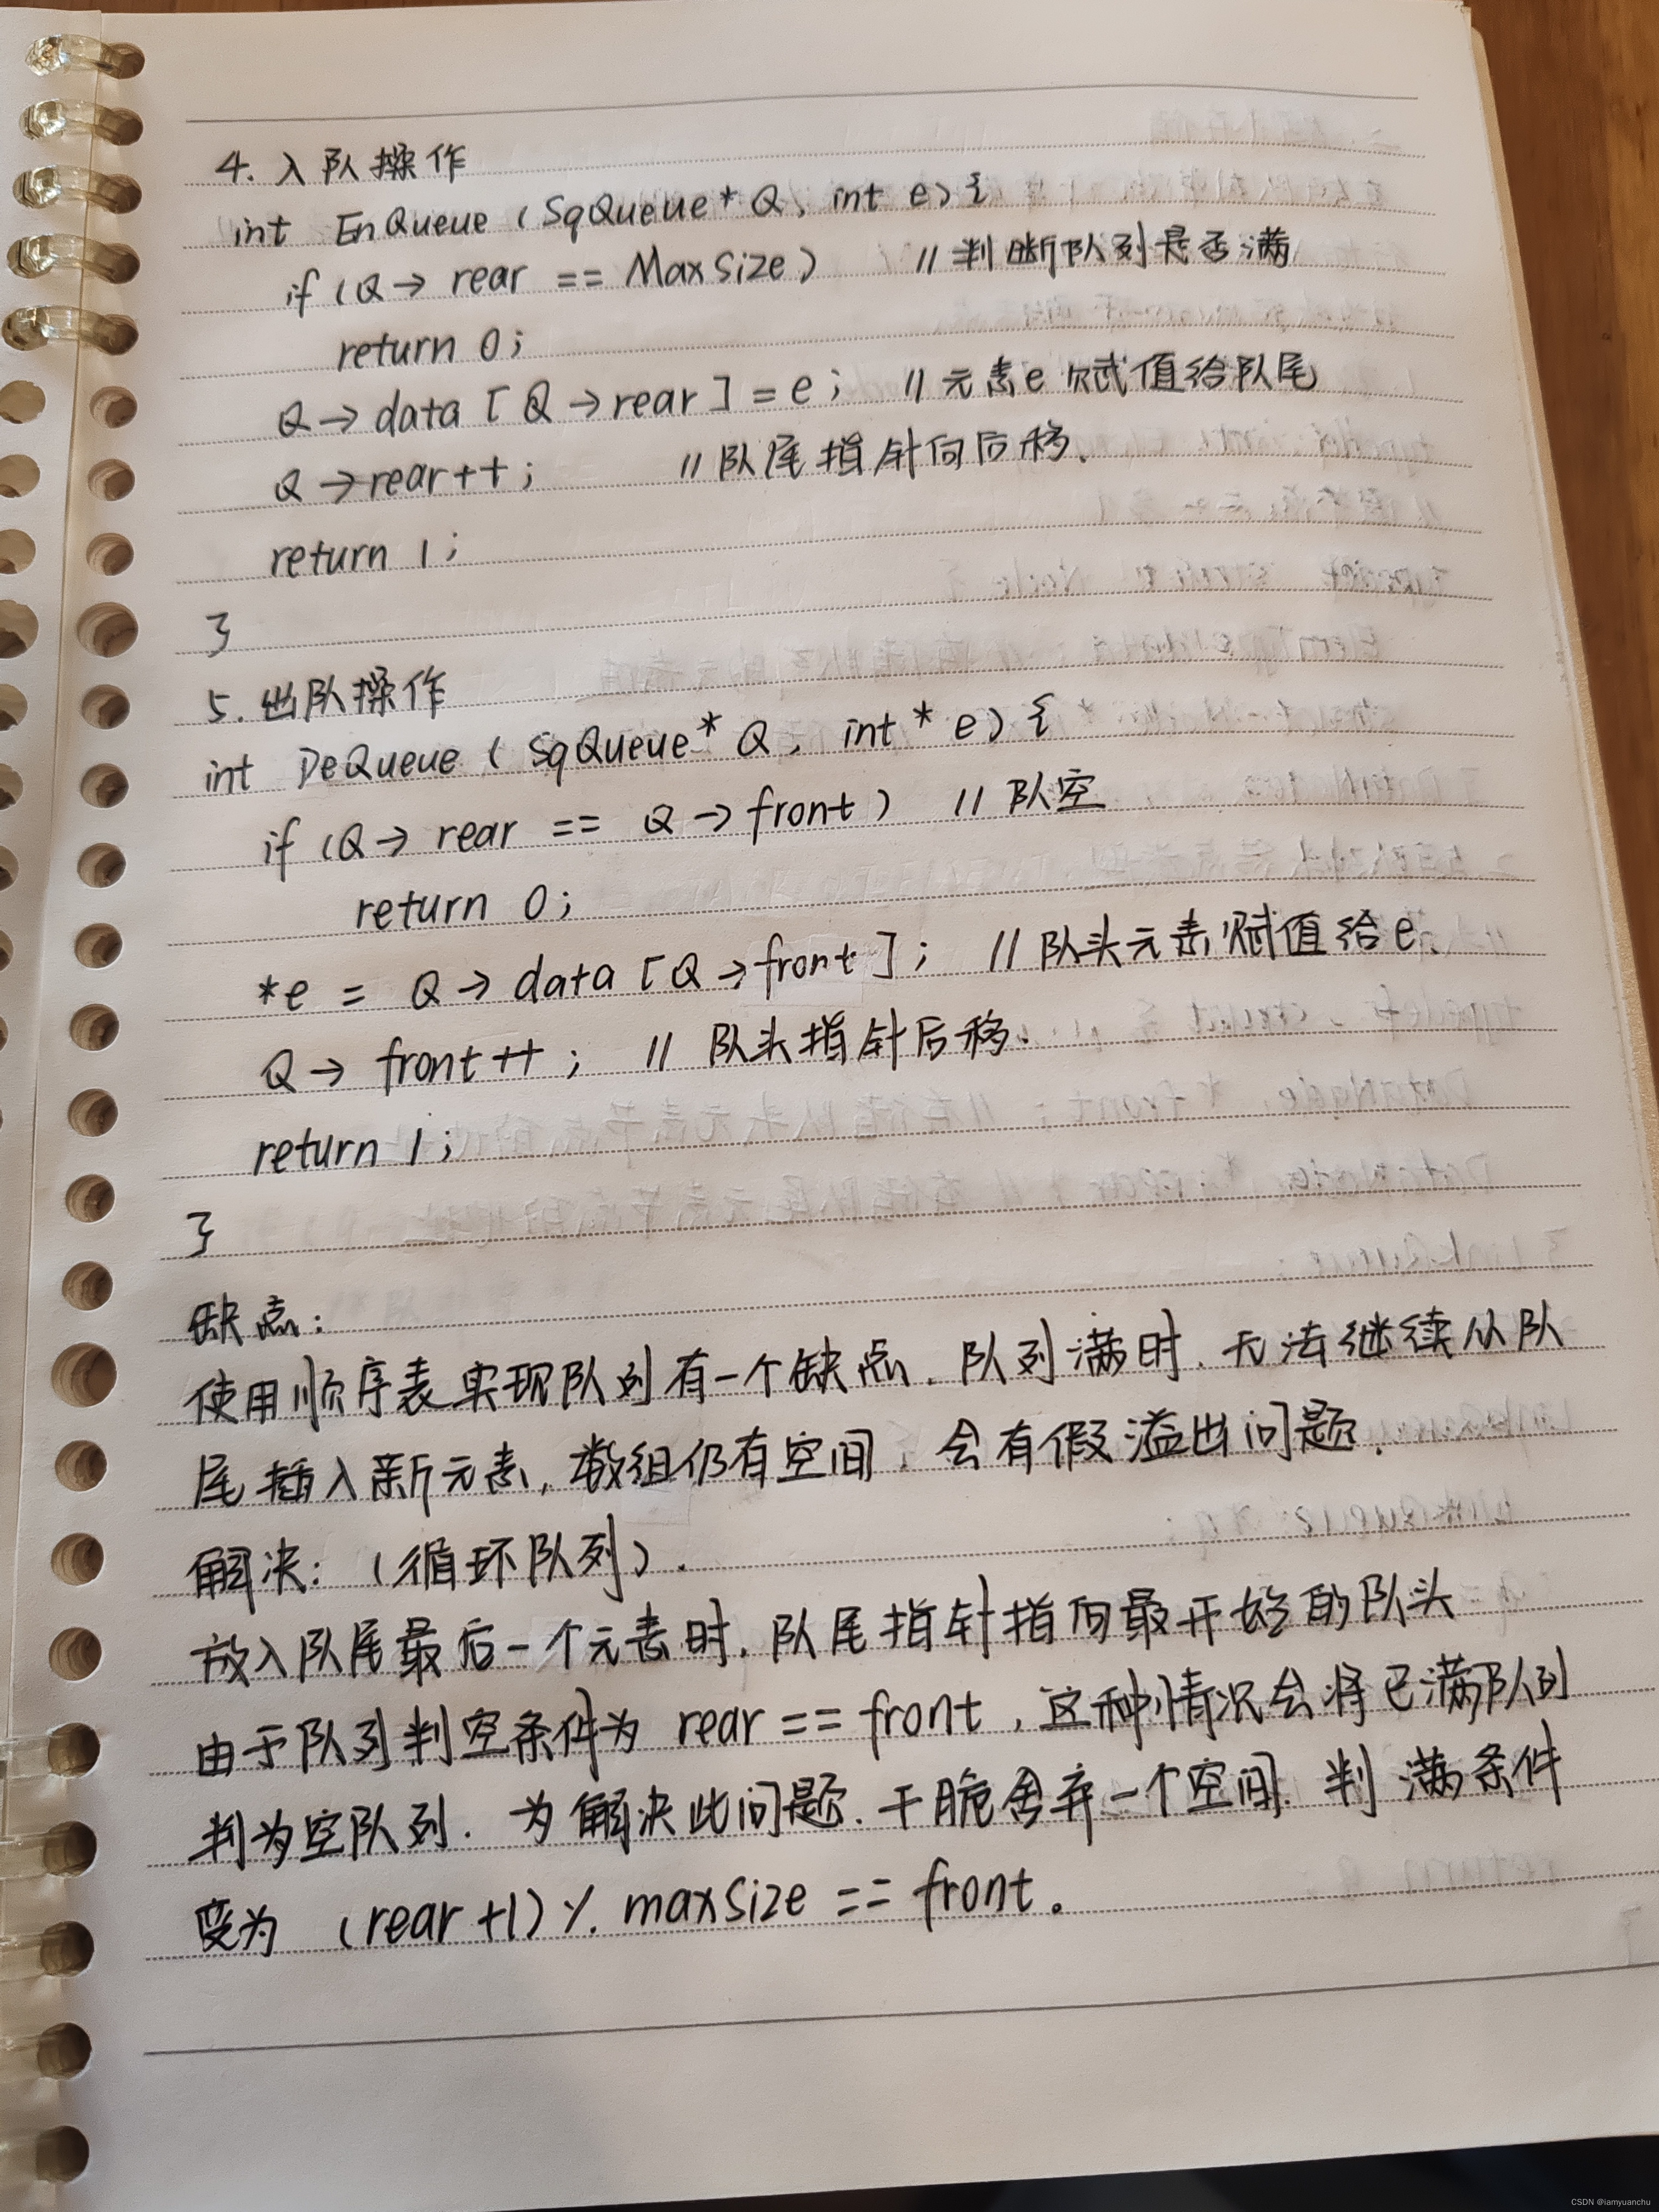 4. 入队操作
int EnQueue (SqQueue* Q, int e) {
if (Q→ rear == MaxSize) // 判断队列是否满
return 0;
Q→data [Q→rear] = e; // 元素e赋值给队尾
Q→rear++; // 队尾指针向后移.
return 1;
}
5. 出队操作
int DeQueue ( SqQueue* Q, int * e) {
if (Q→ rear == Q→front) // 队空
return 0;
*e = Q→ data [Q→front]; // 队头元素赋值给e.
Q→ front++; // 队头指针后移.
return 1;
}
缺点:
使用顺序表实现队列有一个缺点. 队列满时. 无法继续从队
尾插入新元素, 数组仍有空间, 会有假溢出问题.
解决: (循环队列).
放入队尾最后一个元素时. 队尾指针指向最开始的队头
由于队列判空条件为 rear == front, 这种情况会将已满队列
判为空队列. 为解决此问题. 干脆舍弃一个空间. 判满条件
变为 (rear+1) % maxSize == front.
CSDN @iamyuanchu